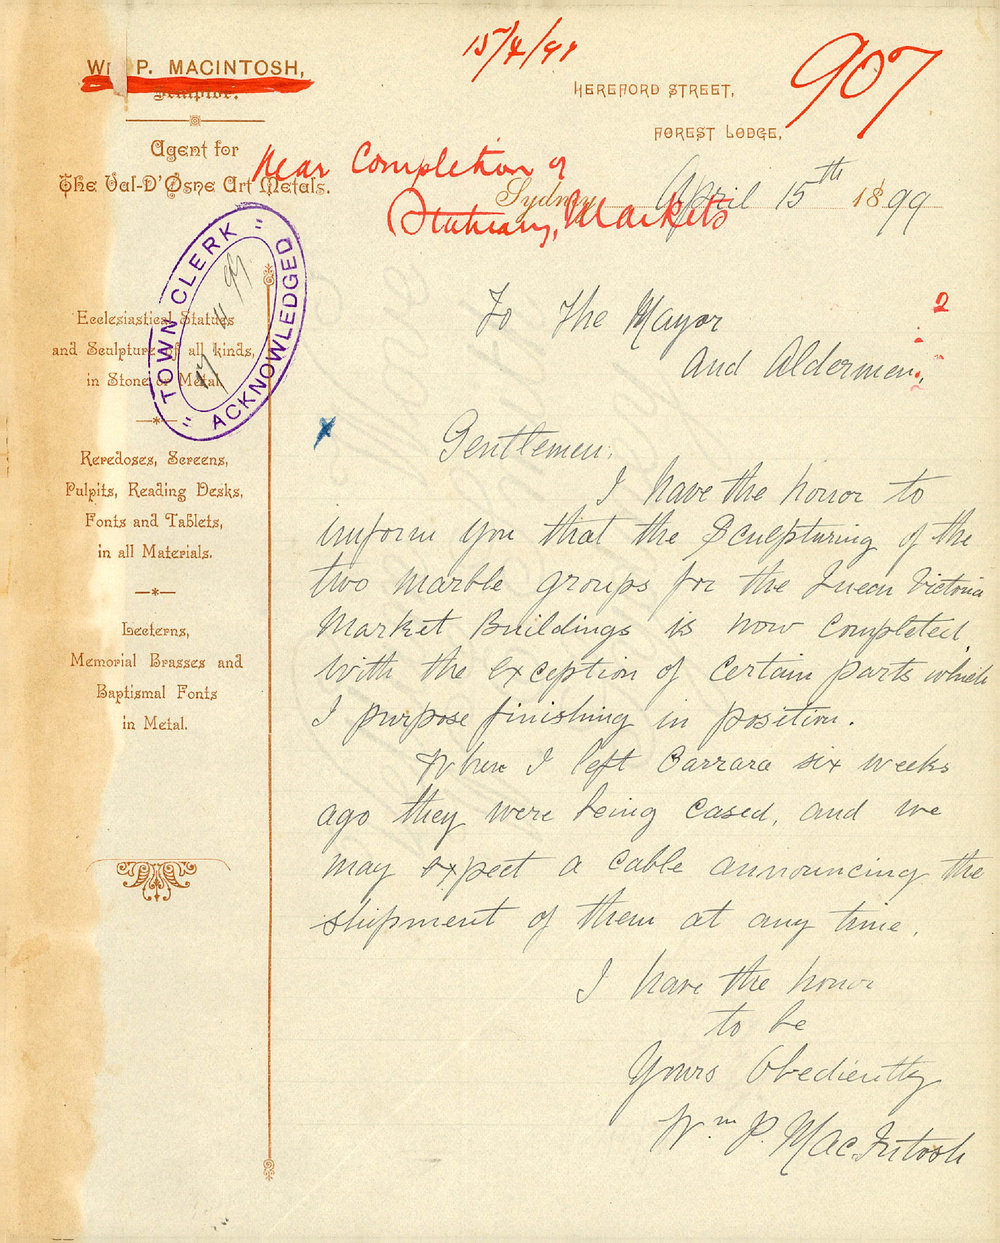 15/4/99
907
Wm P. MACINTOSH,
Sculptor.
Agent for
The Val-D'Osne Art Metals.
HEREFORD STREET,
FOREST LODGE,
Near Completion of
Statuary, Markets
Sydney April 15th 1899
TOWN CLERK
ACKNOWLEDGED
17/4/99
Ecclesiastical Statues
and Sculpture of all kinds,
in Stone or Metal.
Reredoses, Screens,
Pulpits, Reading Desks,
Fonts and Tablets,
in all Materials.
Lecterns,
Memorial Brasses and
Baptismal Fonts
in Metal.
2
To The Mayor
And Aldermen,
x
Gentlemen.
I have the honor to
inform you that the Sculpturing of the
two marble groups for the Queen Victoria
Market Buildings is now completed,
with the exception of certain parts which
I purpose finishing in position.
When I left Carrara six weeks
ago they were being cased, and we
may expect a cable announcing the
shipment of them at any time.
I have the honor
to be
Yours Obediently
Wm P. MacIntosh